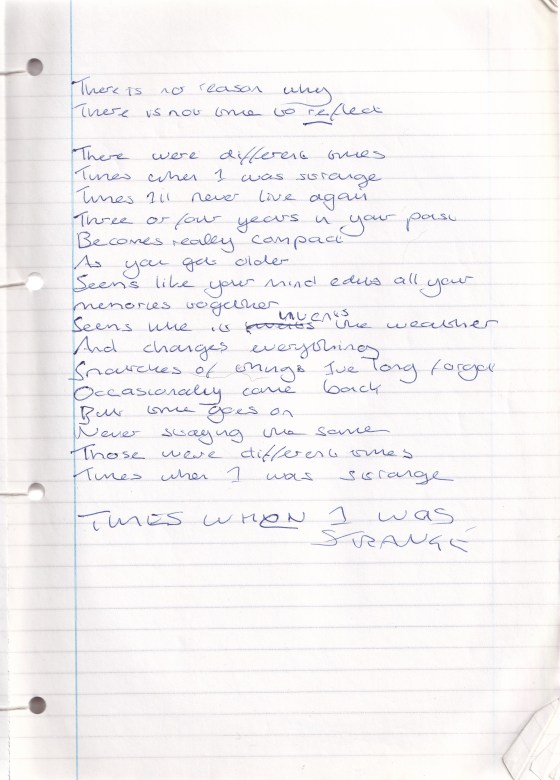 There is no reason why
There is not time to reflect
There were different times
Times when I was strange
Times I'll never live again
Three or four years in your past
Becomes really compact
As you get older
Seems like your mind edits all your
memories together
invents
Seems like it the weather
And changes everything
Snatches of things I've long forgot
Occasionally come back
But time goes on
Never staying the same
Those were different times
Times when I was strange
TIMES WHEN I WAS
STRANGE